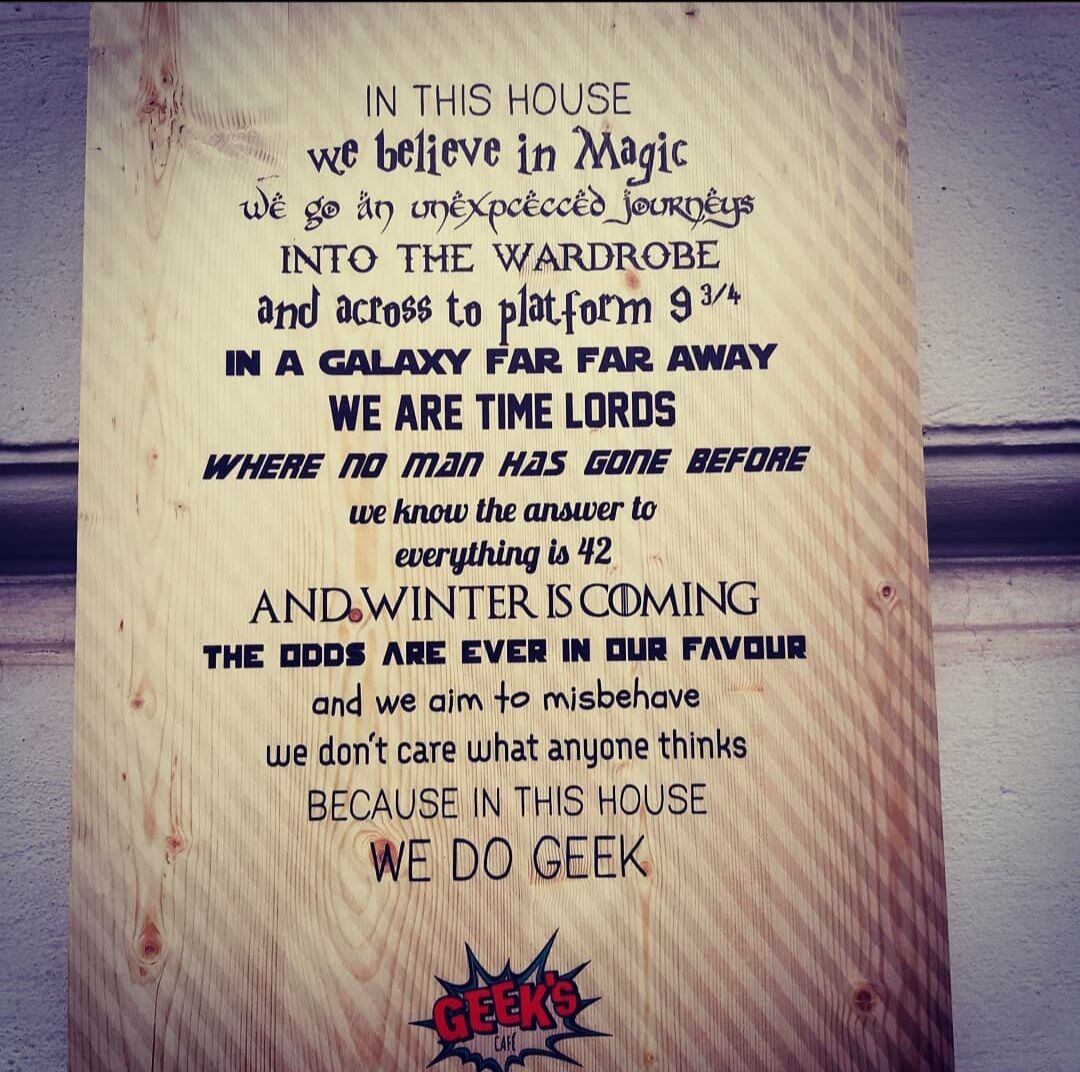 IN THIS HOUSE
we believe in Magic
we go an unexpcecced journeys
INTO THE WARDROBE
and across to platform 9 3/4
IN A GALAXY FAR FAR AWAY
WE ARE TIME LORDS
WHERE NO MAN HAS GONE BEFORE
we know the answer to
everything is 42
AND WINTER IS COMING
THE ODDS ARE EVER IN OUR FAVOUR
and we aim to misbehave
we don't care what anyone thinks
BECAUSE IN THIS HOUSE
WE DO GEEK
GEEK'S
CAFÉ